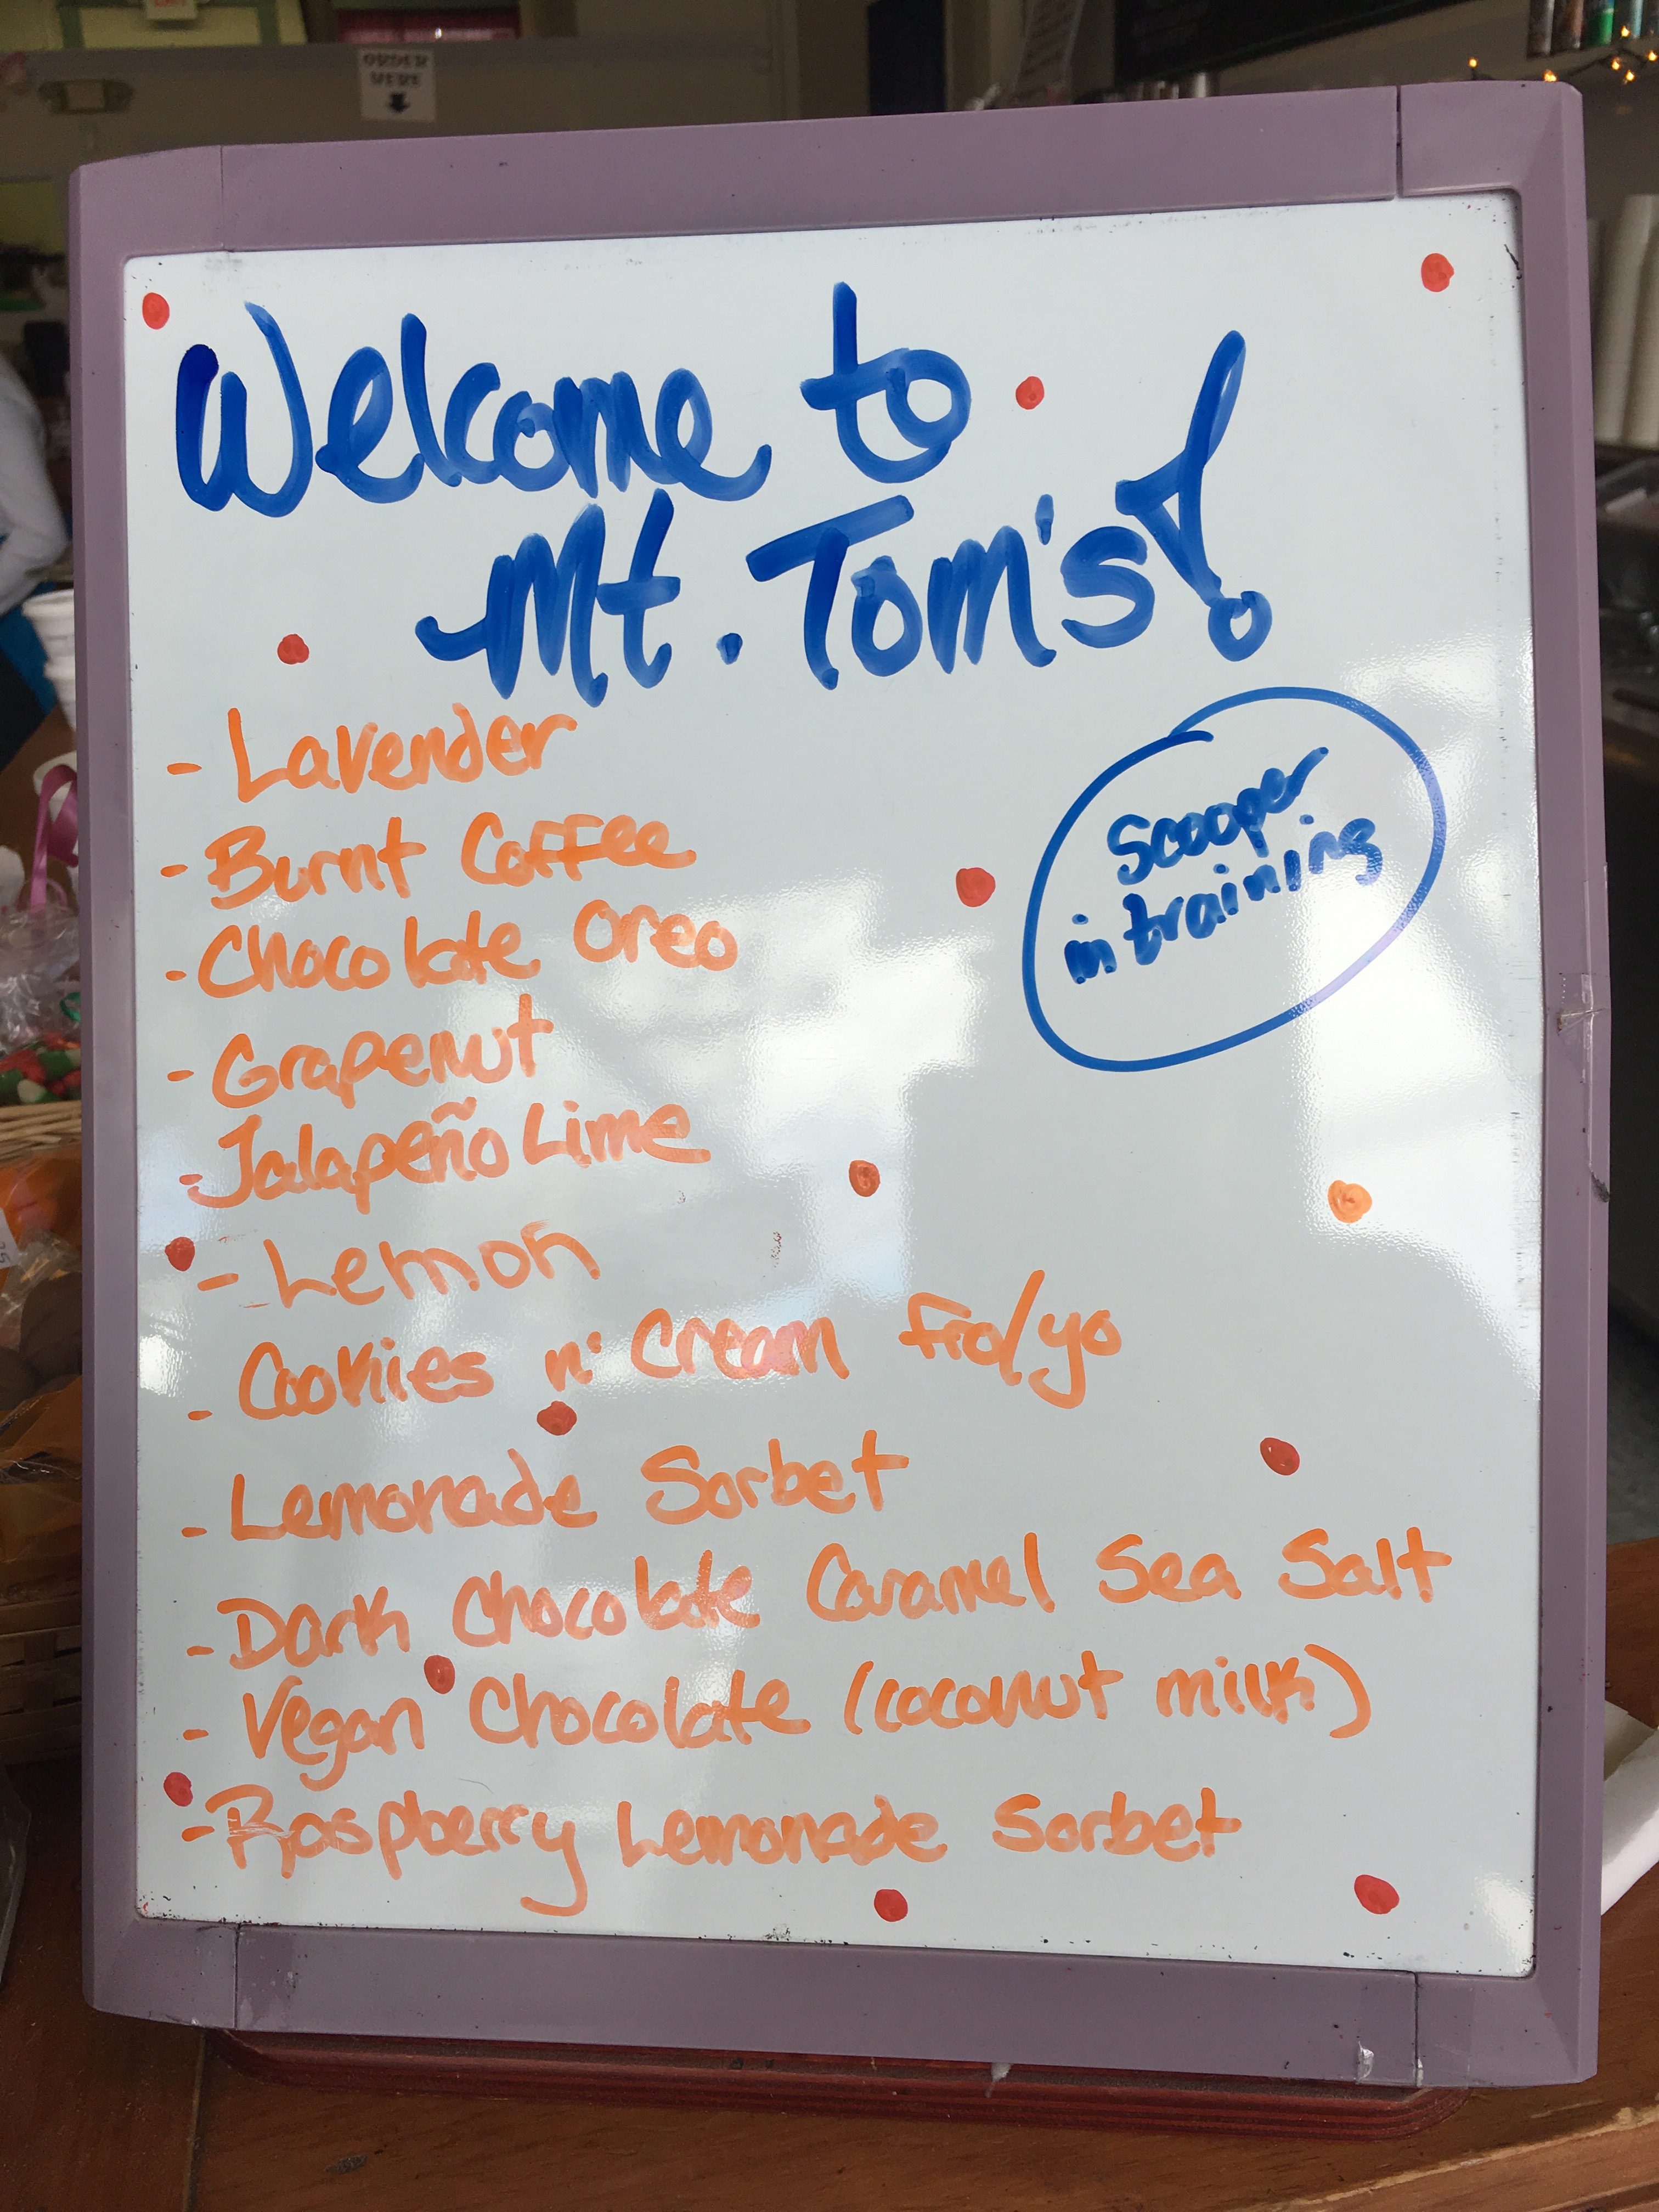 ORDER
HERE
Welcome to
Mt. Tom's!
Scooper
in training
- Lavender
- Burnt Coffee
- Chocolate Oreo
- Grapenut
- Jalapeño Lime
- Lemon
- Cookies n' Cream fro/yo
- Lemonade Sorbet
- Dark Chocolate Caramel Sea Salt
- Vegan Chocolate (coconut milk)
- Raspberry Lemonade Sorbet